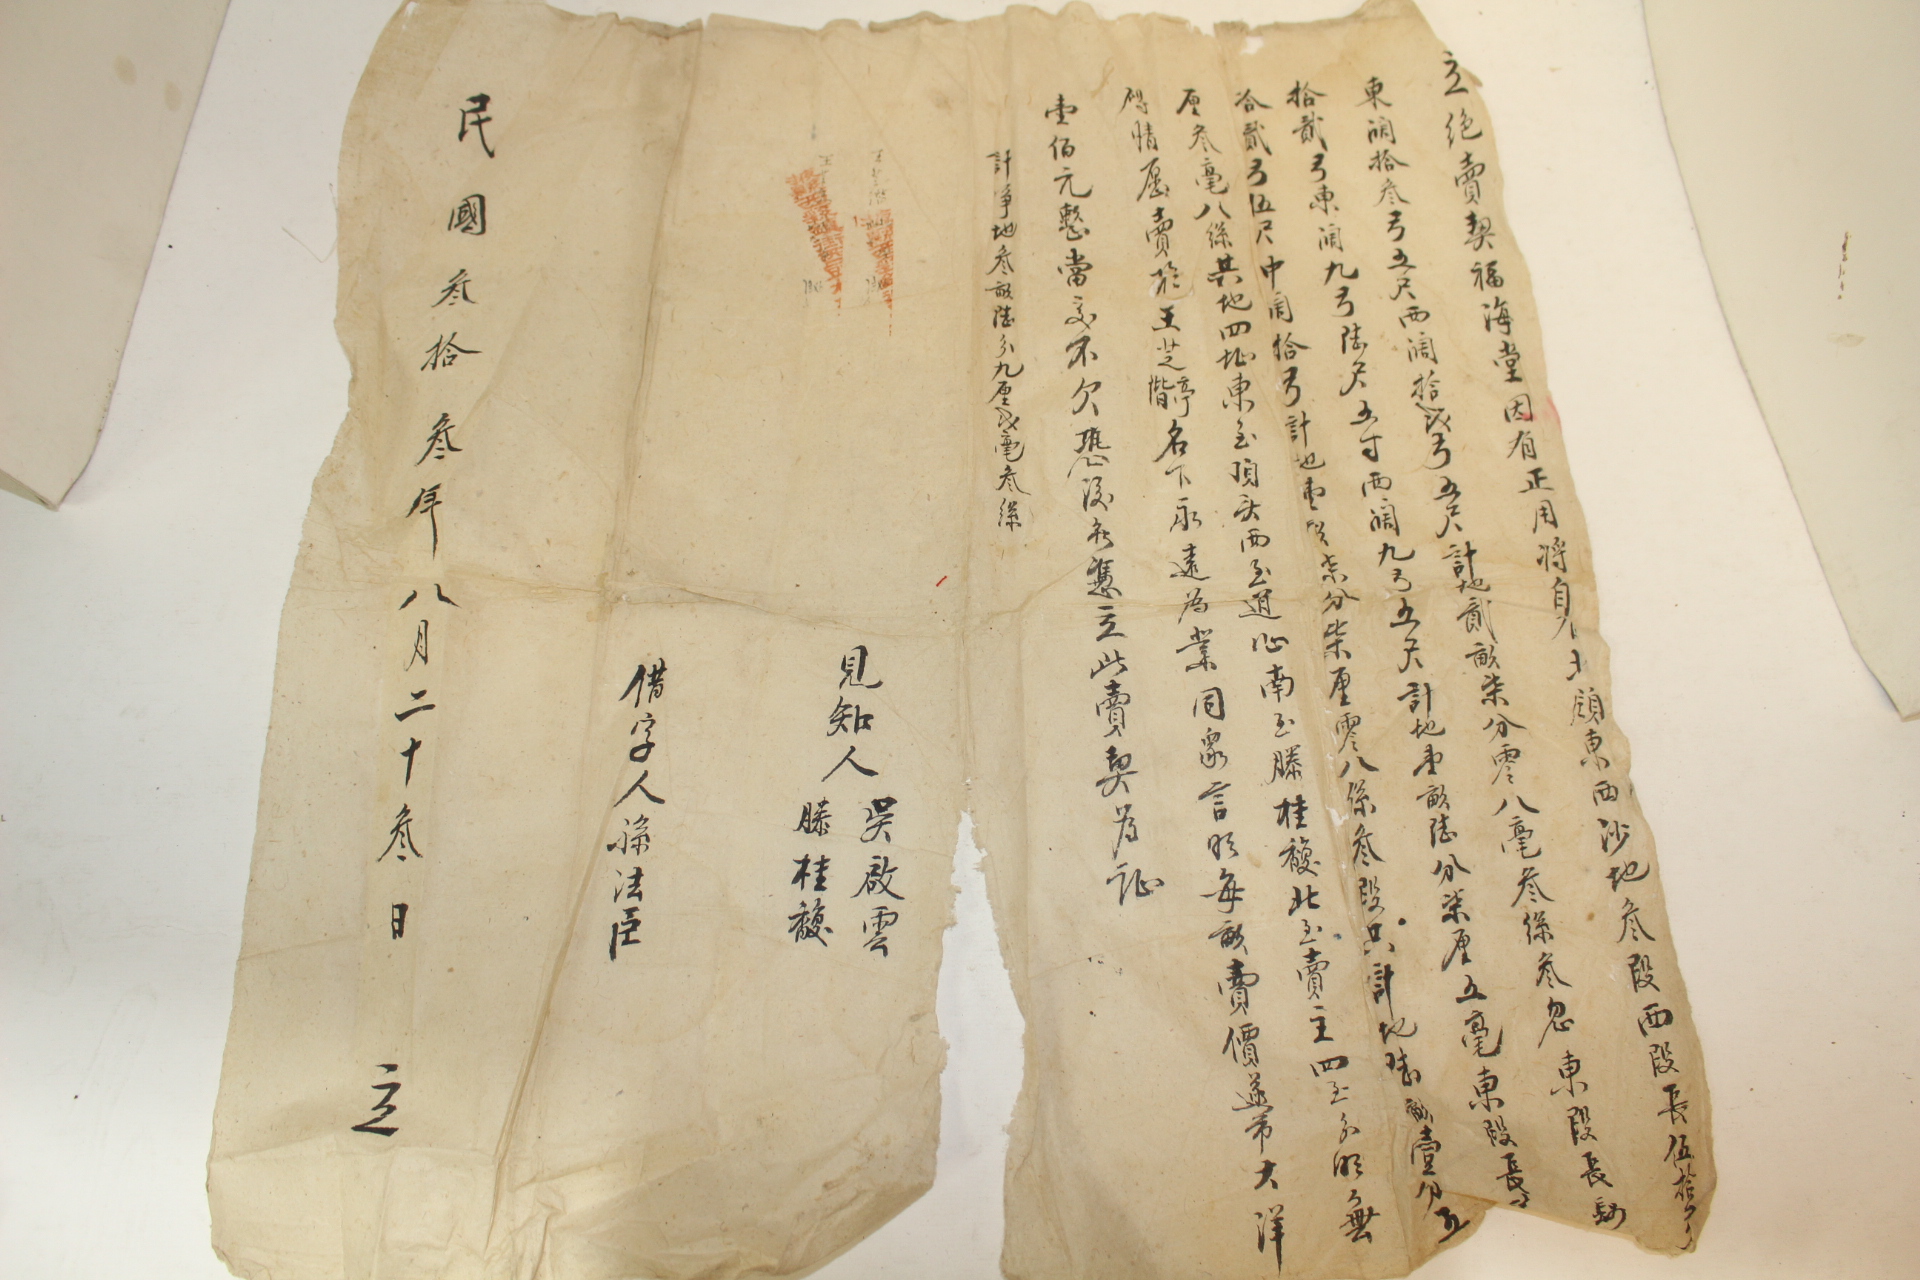 立絕賣契福海堂因有正用將自北頭東西沙地叁段西段長伍拾弓
東濶拾叁弓五尺西濶拾弍弓五尺計地貳畝柒分零八毫叁絲叁忽東段長
拾貳弓東濶九弓陆尺五寸西濶九弓五尺計地壹畝陆分柒厘五毫東段長
合貳弓伍尺中濶拾弓計地壹畝柒分柒厘零八絲叁段共計地陆畝壹分五
厘叁毫八絲其地四址東至頂头西至道心南至滕桂馥北至賣主四至分明無
碍情愿賣於王芝階亭名下永遠為業同衆言明每畝賣價遂市大洋
壹佰元整當交不欠恐後無憑立此賣契為証
計爭地叁畝陆分九厘弍毫叁絲
見知人 吳啟雲
滕桂馥
借字人孫法臣
民國叁拾叁年八月二十叁日 立